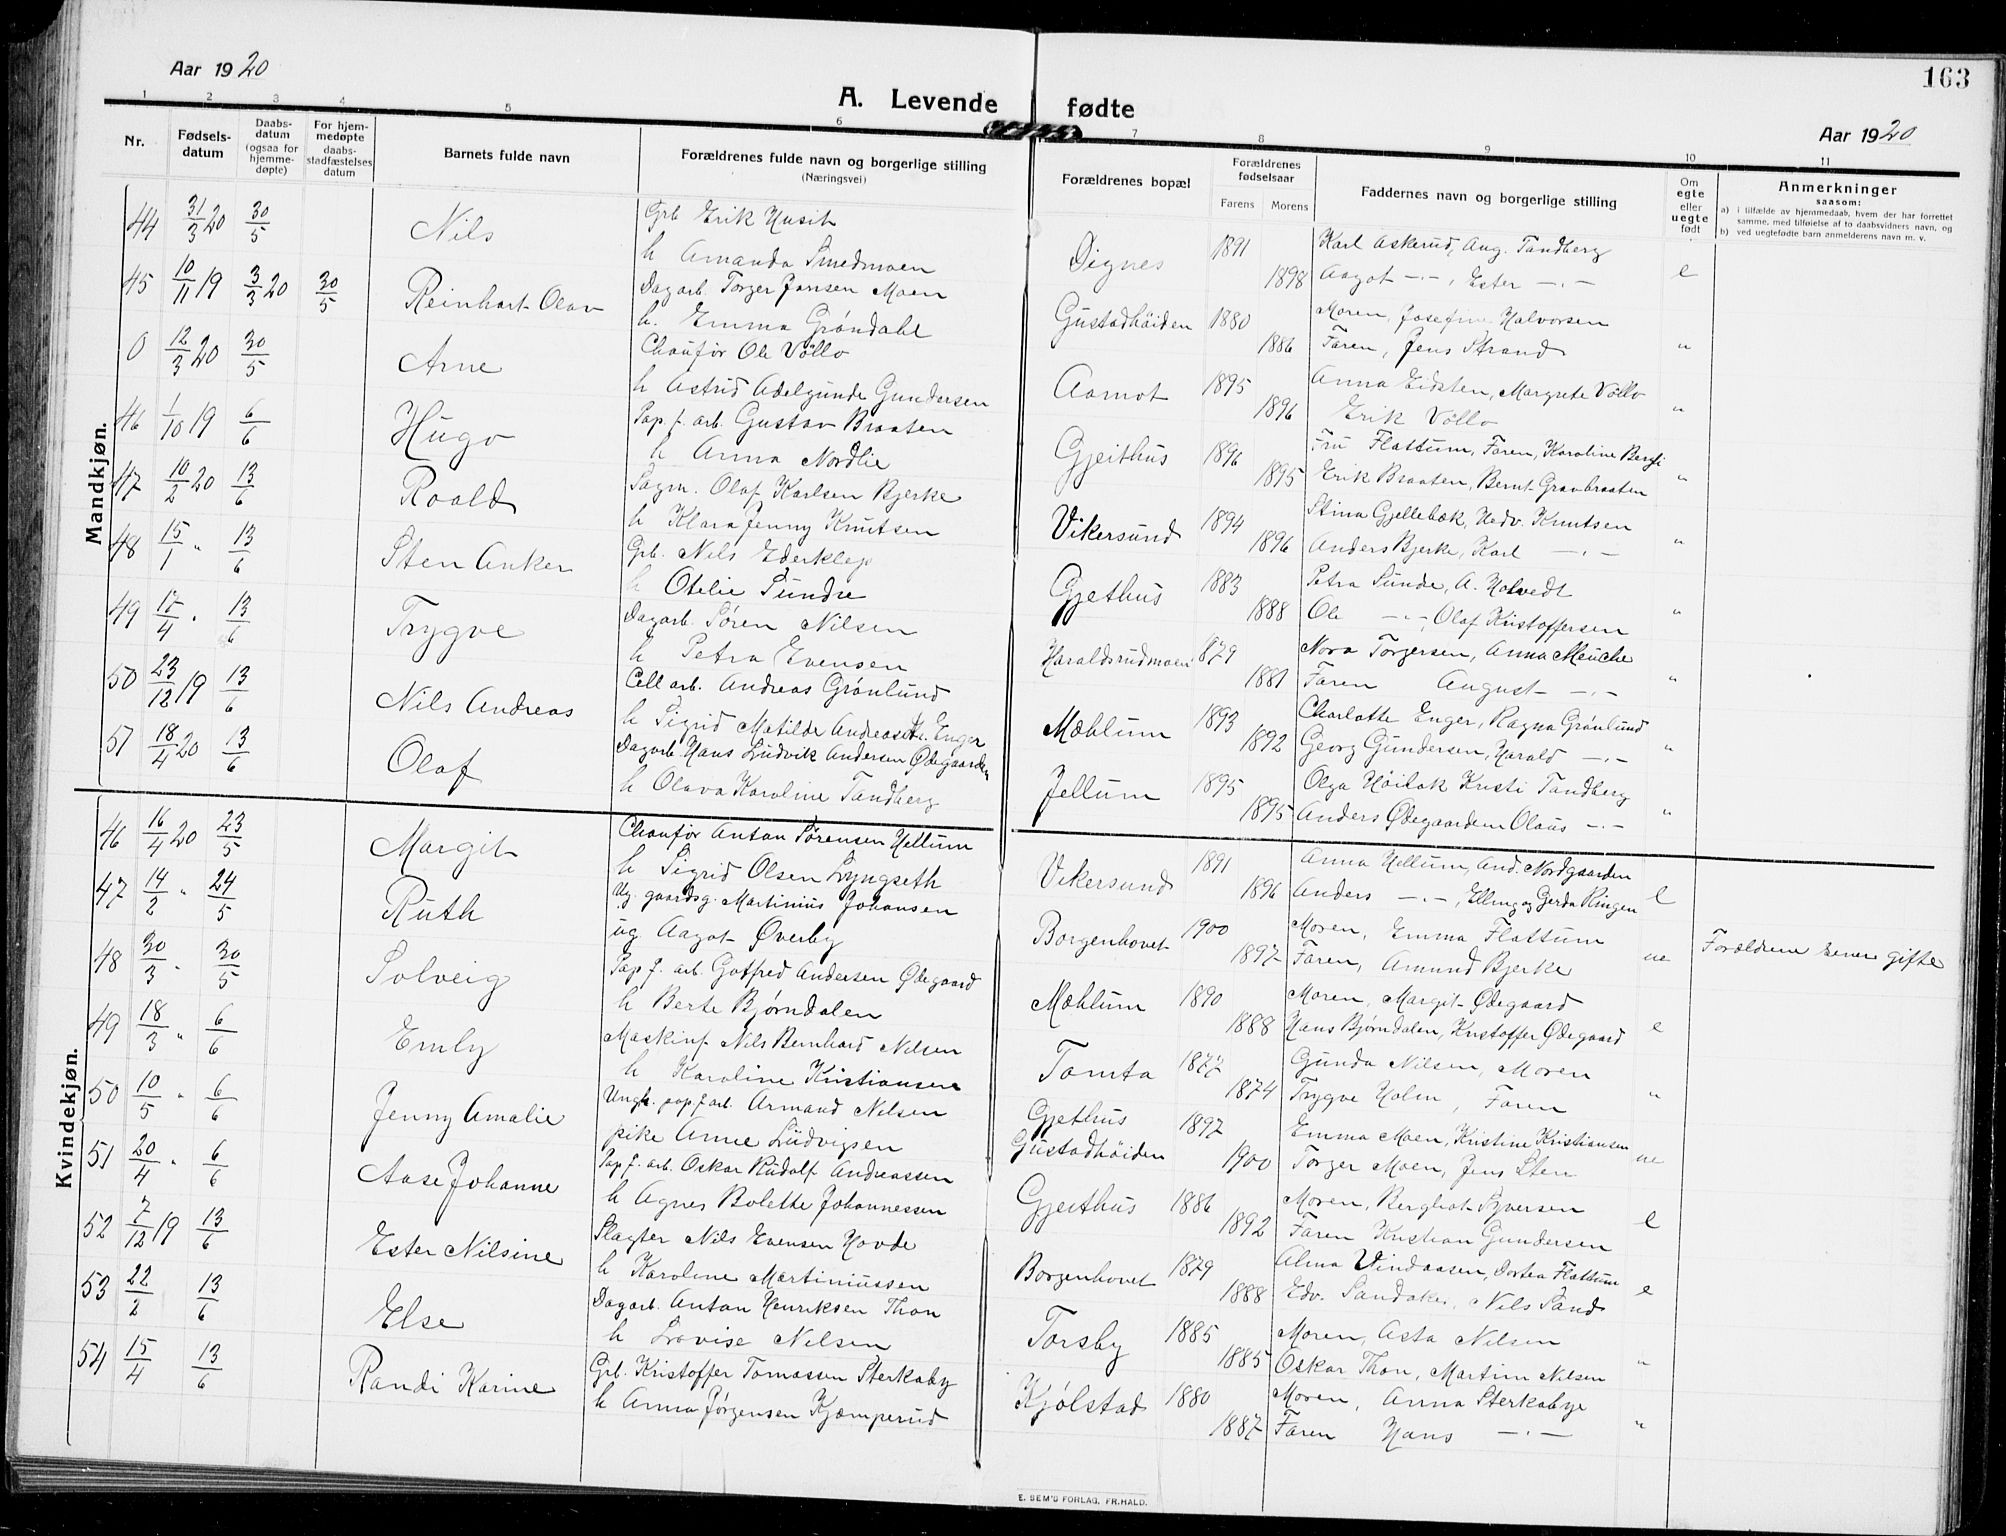 Aar 1920
A. Levende fødte
163
Aar 1920
1 2 3 4 5 6 7 8 9 10 11
Nr.
Fødsels-datum
Daabs-datum (ogsaa for hjemme-døpte)
For hjem-medøpte daabs-stadfæstelses datum
Barnets fulde navn
Forældrenes fulde navn og borgerlige stilling (Næringsvei)
Forældrenes bopæl
Forældrenes fødselsaar
Farens Morens
Faddernes navn og borgerlige stilling
Om egte eller uegte født
Anmerkninger
saasom:
a) i tilfælde av hjemmedaab, hvem der har forrettet samme, med tilføielse af to daabsvidners navn, og
b) ved uegtefødt barn anmelderens navn m. v.
Mandkjøn.
44 31/3 20 30/5 Nils Grb Erik Husih Dignes 1891 Karl Askerud, Aug. Tandberg
h Amanda Smedmoen 1898 Aagot -"-, Ester -"- e
45 10/11 19 3/3 20 30/5 Reinhart Olav Dagarb. Torger Jansen Moen Gustadhöiden 1880 Moren, Josefine Halvorsen
h. Emma Grøndahl 1886 Faren, Jens Strand "
0 12/3 20 30/5 Arne Chaufør Ole Völlo Aamot 1895 Anna Eidsten, Margrete Völlo
h Astrid Adelgunde Gundersen 1896 Erik Völlo "
46 1/10 19 6/6 Hugo Pap.f. arb. Gustav Braaten Gjeithus 1896 Fru Flattum, Faren, Karoline Bergli
h Anna Nordlie 1895 Erik Braaten, Bernt Gravbraaten "
47 10/2 20 13/6 Roald Sagm. Olaf Karlsen Bjerke Vikersund 1894 Stina Gjellebæk, Hedv. Knutsen
h Klara Jenny Knutsen 1896 Anders Bjerke, Karl -"- "
48 15/1 " 13/6 Sten Anker Grb. Nils Ederklep Gjethus 1883 Petra Sunde, A. Holvedt
h Otelie Sundre 1888 Ole -"-, Olaf Kristoffersen "
49 17/4 " 13/6 Trygve Dagarb. Søren Nilsen Haraldsrudmoen 1879 Nora Torgersen, Anna Meuche
h Petra Evensen 1881 Faren August -"- "
50 23/12 19 13/6 Nils Andreas Cell arb. Andreas Grønlund Mæhlum 1893 Charlotte Enger, Ragna Grønlund
h Sigrid Matilde Andreasdtr. Enger 1892 Georg Gundersen, Harald -"- "
51 18/4 20 13/6 Olaf Dagarb. Hans Ludvik Andersen Ødegaarden Jellum 1895 Olga Höibak Kristi Tandberg
h Olava Karoline Tandberg 1895 Anders Ødegaarden Olaus -"- "
Kvindekjøn.
46 16/4 20 23/5 Margit Chaufør Anton Sørensen Hellum Vikersund 1891 Anna Hellum, And. Nordgaarden
h Sigrid Olsen Lyngseth 1896 Anders -"-, Elling og Gerda Ringen e
47 14/2 " 24/5 Ruth Ug. gaardsg. Martinius Johansen Borgenhovet 1900 Moren, Emma Flattum
ug Aagot Øverby 1897 Faren, Amund Bjerke ue Forældrene senere gifte
48 30/3 " 30/5 Solveig Pap f. arb. Gotfred Andersen Ødegaard Mæhlum 1890 Moren, Margit Ødegaard
h Berte Bjørndalen 1888 Hans Bjørndalen, Kristoffer Ødegaard e
49 18/3 " 6/6 Emly Maskinf. Nils Bernhard Nilsen Tomta 1877 Gunda Nilsen, Moren
h Karoline Kristiansen 1874 Trygve Holm, Faren "
50 10/5 " 6/6 Jenny Amalie Ungk. pap f. arb. Armand Nilsen Gjethus 1897 Emma Moen, Kristine Kristiansen
pike Anne Ludvigsen Gustadhöiden 1900 Torger Moen, Jens Sten ue
51 20/4 " 6/6 Aase Johanne Pap f. arb. Oskar Rudolf Andreassen Gjeithus 1886 Moren, Berghot Syversen
h Agnes Bolette Johannessen 1892 Faren Kristian Gundersen e
52 7/12 19 13/6 Ester Nilsine Slagter Nils Evensen Hovde Borgenhovet 1879 Alma Vindaasen, Dortea Flattum
h Karoline Martiniussen 1888 Edv. Sandaker, Nils Sand e
53 22/2 13/6 Else Dagarb. Anton Henriksen Thon Torsby 1885 Moren, Asta Nilsen
h Lovise Nilsen 1885 Oskar Thon, Martin Nilsen "
54 15/4 13/6 Randi Karine Grb. Kristoffer Tomassen Sterkeby Kjølstad 1880 Moren, Anna Sterkebye
h Anna Jørgensen Kjæmperud 1887 Faren Hans -"- "
E. SEM'S FORLAG, FR.HALD.